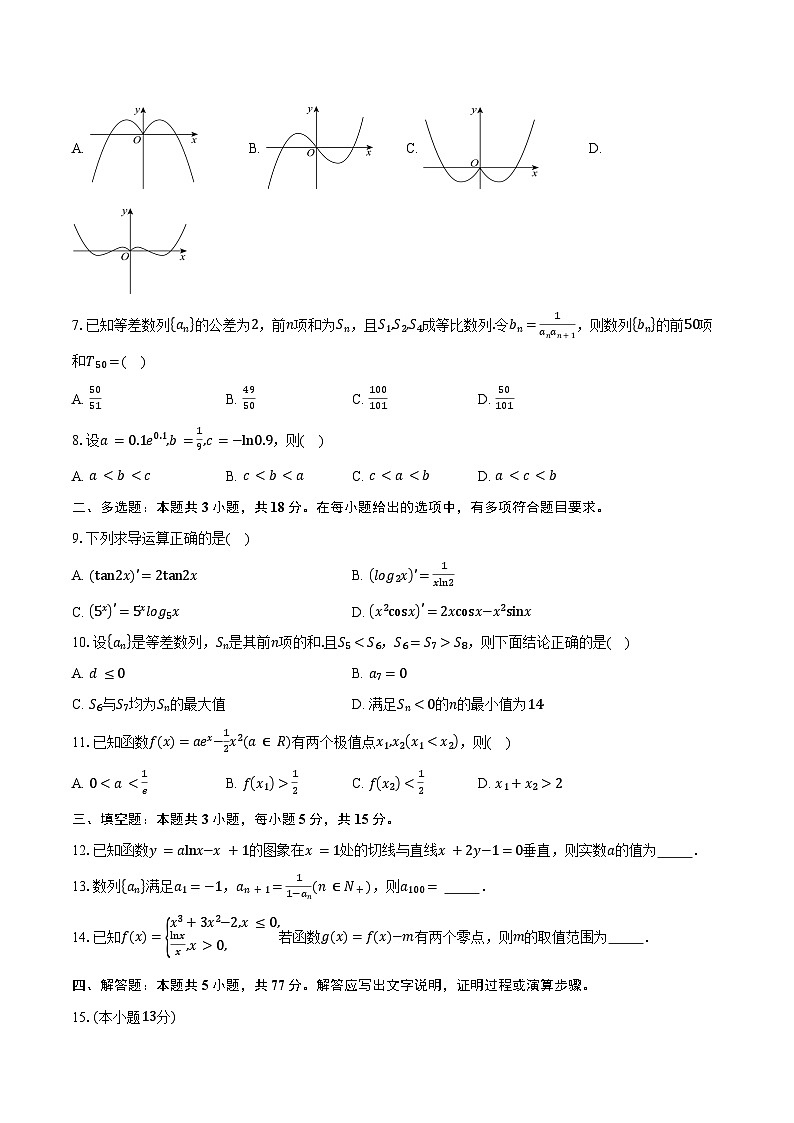 A. B. C. D.
y x O y x O y x O
y x O
7. 已知等差数列{aₙ}的公差为2，前n项和为Sₙ，且S₁,S₂,S₄成等比数列.令bₙ = 1/(aₙaₙ₊₁)，则数列{bₙ}的前50项
和T₅₀ = (    )
A. 50/51 B. 49/50 C. 100/101 D. 50/101
8. 设a = 0.1e^0.1,b = 1/9,c = −ln0.9，则(    )
A. a < b < c B. c < b < a C. c < a < b D. a < c < b
二、多选题：本题共 3 小题，共 18 分。在每小题给出的选项中，有多项符合题目要求。
9. 下列求导运算正确的是(    )
A. (tan2x)′ = 2tan2x B. (log₂x)′ = 1/(xln2)
C. (5ˣ)′ = 5ˣlog₅x D. (x²cosx)′ = 2xcosx−x²sinx
10. 设{aₙ}是等差数列，Sₙ是其前n项的和.且S₅ < S₆，S₆ = S₇ > S₈，则下面结论正确的是(    )
A. d ≤ 0 B. a₇ = 0
C. S₆与S₇均为Sₙ的最大值 D. 满足Sₙ < 0的n的最小值为14
11. 已知函数f(x) = aeˣ−1/2x²(a ∈ R)有两个极值点x₁,x₂(x₁ < x₂)，则(    )
A. 0 < a < 1/e B. f(x₁) > 1/2 C. f(x₂) < 1/2 D. x₁ + x₂ > 2
三、填空题：本题共 3 小题，每小题 5 分，共 15 分。
12. 已知函数y = alnx−x + 1的图象在x = 1处的切线与直线x + 2y−1 = 0垂直，则实数a的值为_____．
13. 数列{aₙ}满足a₁ = −1，aₙ₊₁ = 1/(1−aₙ)(n ∈ N₊)，则a₁₀₀ = _____．
14. 已知f(x) = {x³ + 3x²−2,x ≤ 0, lnx/x,x > 0, 若函数g(x) = f(x)−m有两个零点，则m的取值范围为_____．
四、解答题：本题共 5 小题，共 77 分。解答应写出文字说明，证明过程或演算步骤。
15. (本小题13分)